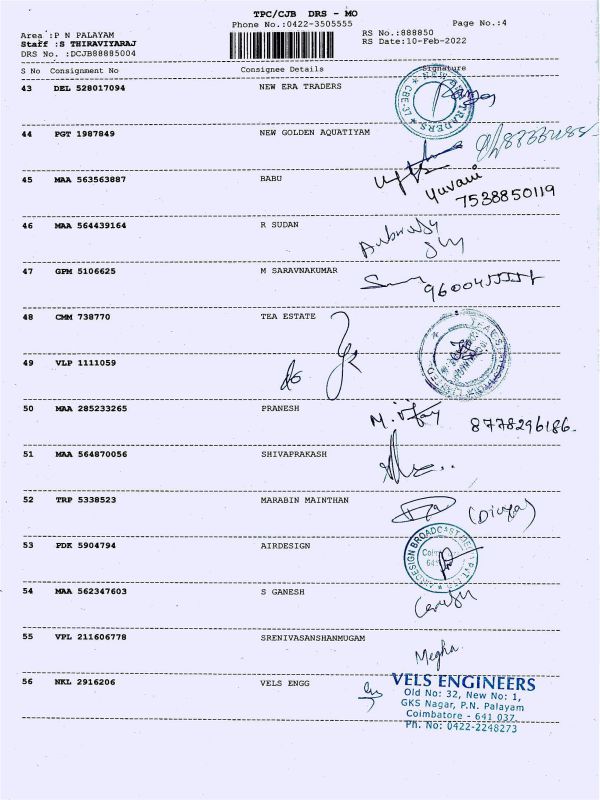 TPC/CJB DRS - MO
Phone No.:0422-3505555 Page No.:4
Area :P N PALAYAM RS No.:888850
Staff :S THIRAVIYARAJ RS Date:10-Feb-2022
DRS No. :DCJB88885004
S No Consignment No Consignee Details Signature
43 DEL 528017094 NEW ERA TRADERS
44 PGT 1987849 NEW GOLDEN AQUATIYAM
45 MAA 563563887 BABU
Yuvani
7538850119
46 MAA 564439164 R SUDAN
47 GPM 5106625 M SARAVNAKUMAR
48 CMM 738770 TEA ESTATE
49 VLP 1111059
50 MAA 285233265 PRANESH M. Vijay 8778296186.
51 MAA 564870056 SHIVAPRAKASH
52 TRP 5338523 MARABIN MAINTHAN (Divya)
53 PDK 5904794 AIRDESIGN
54 MAA 562347603 S GANESH
55 VPL 211606778 SRENIVASANSHANMUGAM
Megha
56 NKL 2916206 VELS ENGG
VELS ENGINEERS
Old No: 32, New No: 1,
GKS Nagar, P.N. Palayam
Coimbatore - 641 037.
Ph. No: 0422-2248273